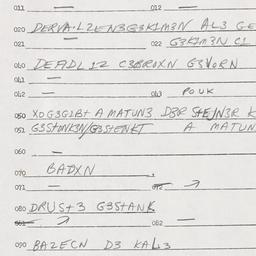 011 — 012 —
020 DERVA·LZEN3G3K1M3N AL3 GE
021 — 022 G3K1M3N CL
060 DEADL12 C3BROXN G3VORN
061 —
062 — 063 POUK
050 XOG3G1Bt A MATUN3 D3R StE/N3R K
051 G3StANK3N/G3StENKT A MATUN
060 —
070 BADXN
071 —
080 DRUSt3 G3StANK
062 —
090 BAZECN D3 KAL3